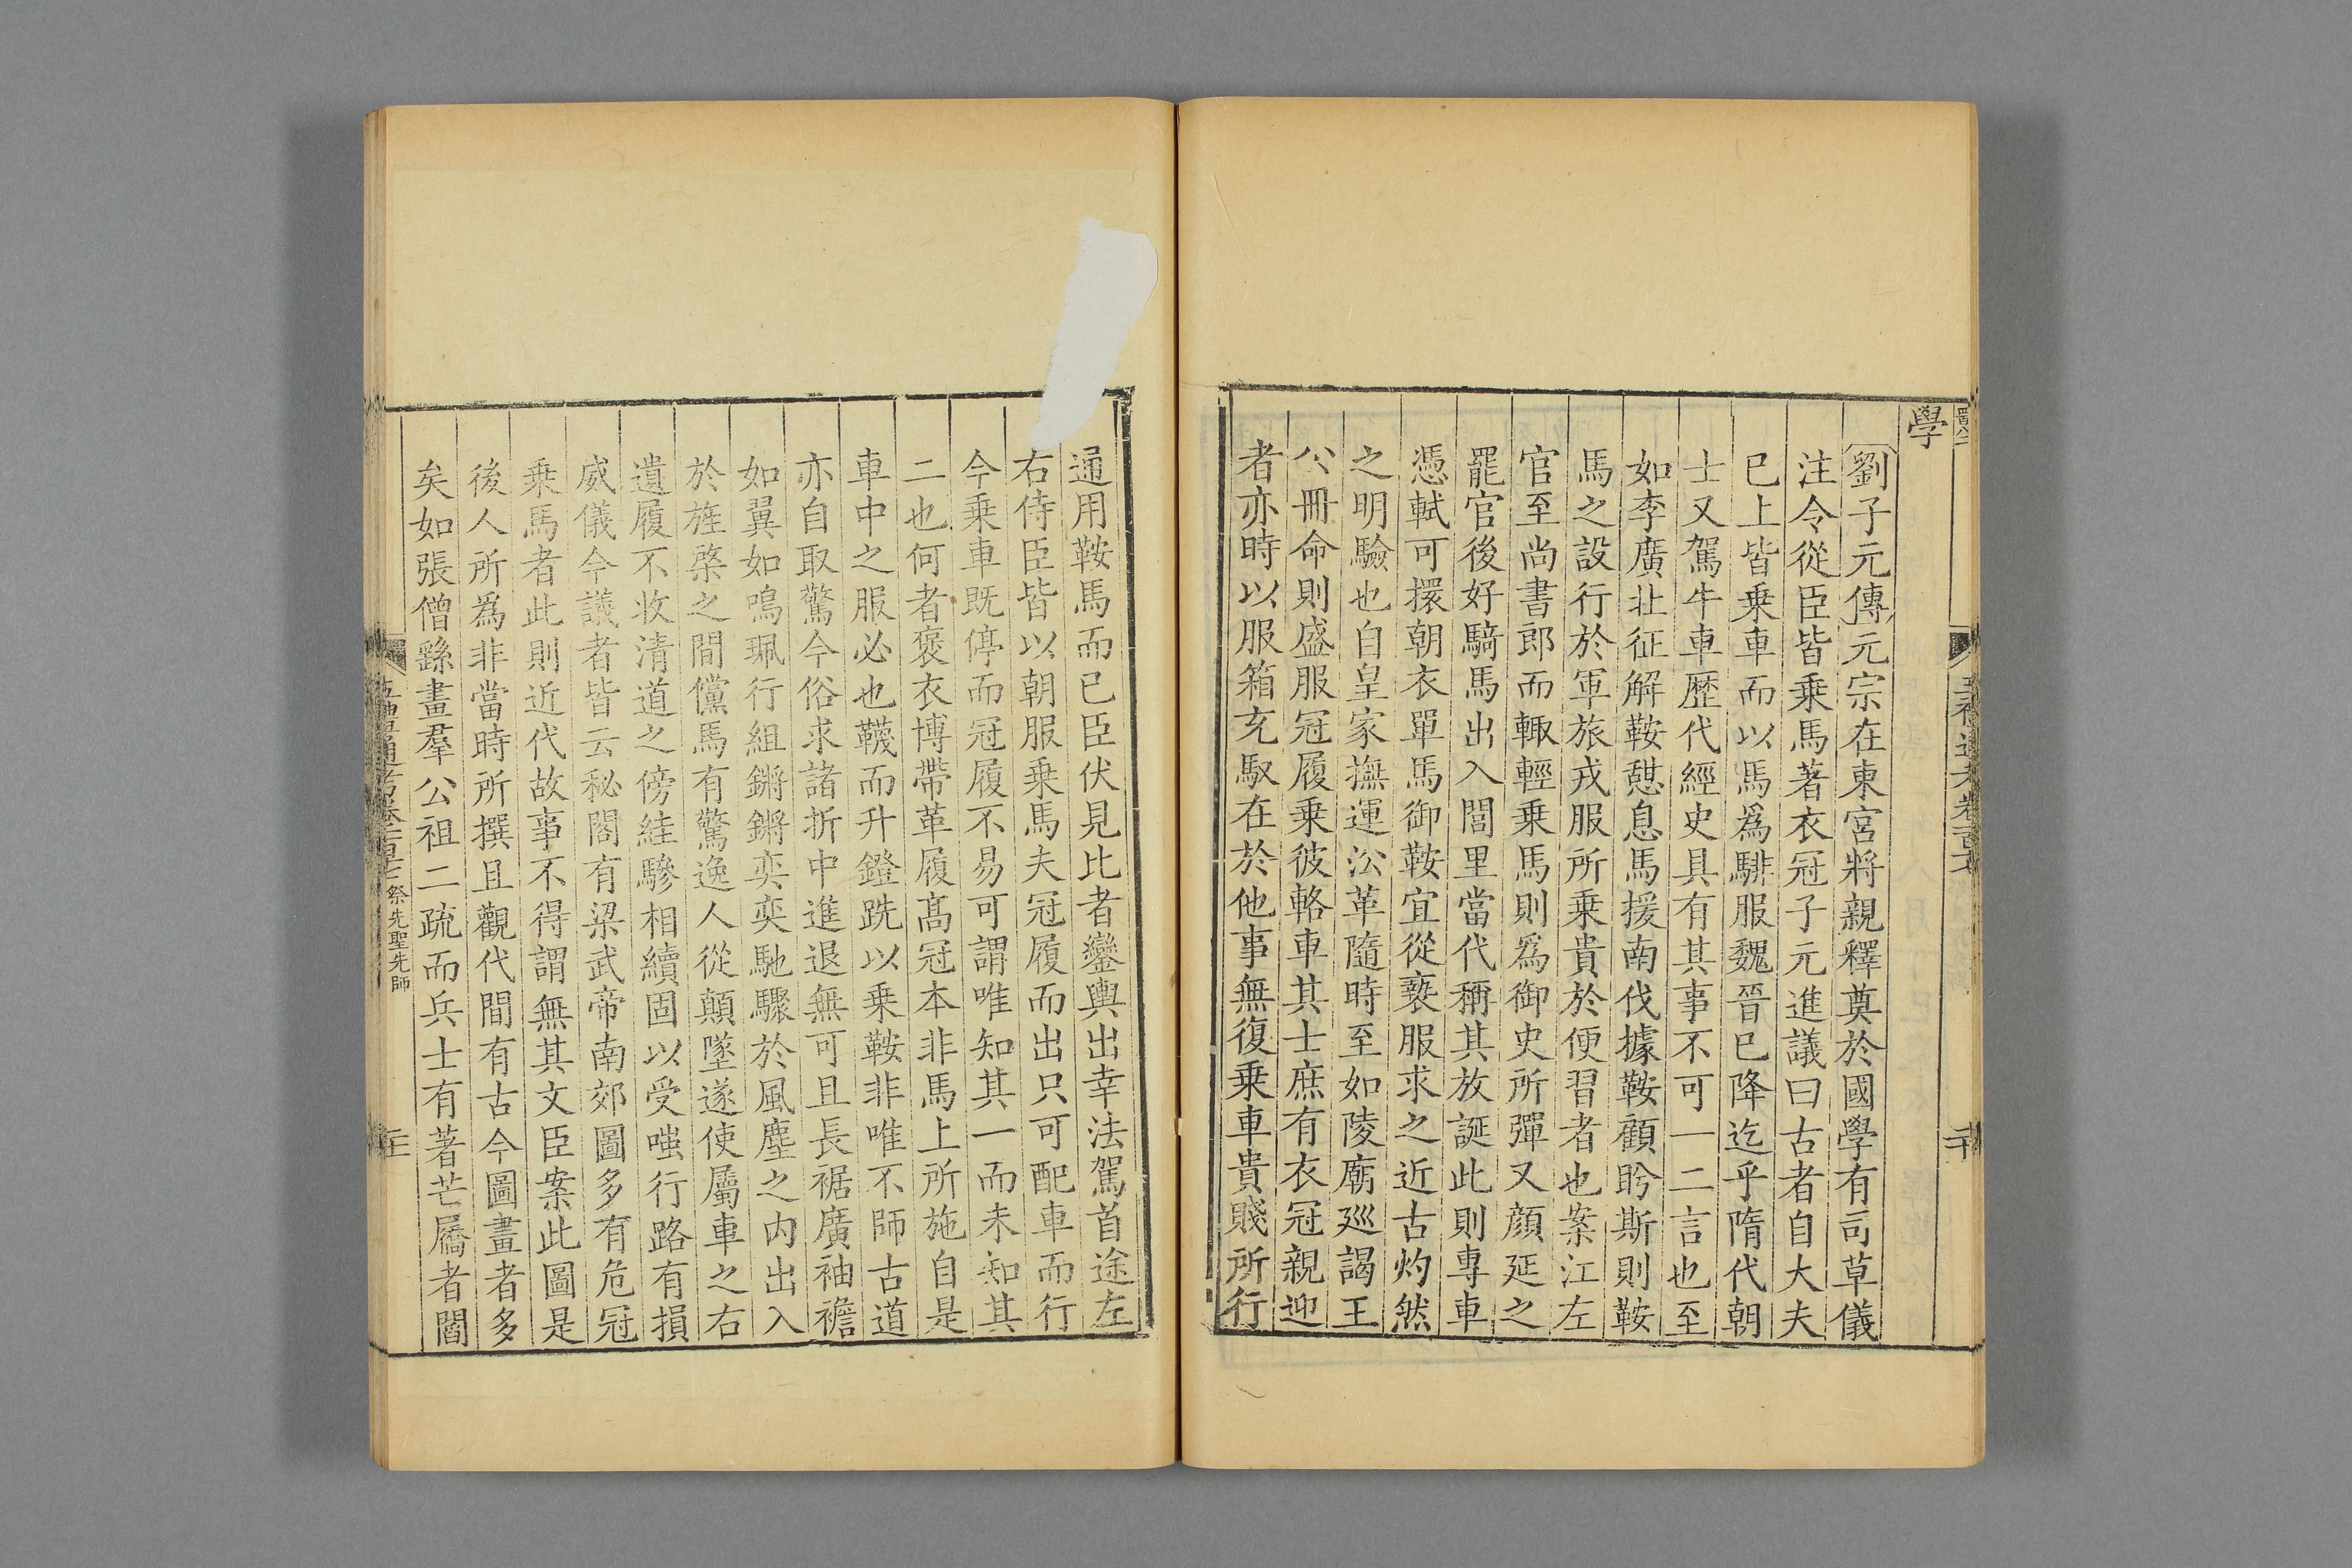 學
劉子元傳元宗在東宮將親釋奠於國學有司草儀
注令從臣皆乗馬著衣冠子元進議曰古者自大夫
已上皆乗車而以馬爲騑服魏晉已降迄乎隋代朝
士又駕牛車歴代經史具有其事不可一二言也至
如李廣北征解鞍憇息馬援南伐據鞍顧盻斯則鞍
馬之設行於軍旅戎服所乗貴於便習者也案江左
官至尚書郎而輙輕乗馬則爲御史所彈又顔延之
罷官後好騎馬出入閭里當代稱其放誕此則專車
憑軾可擐朝衣單馬御鞍宜從䙝服求之近古灼然
之明驗也自皇家撫運㳂革隨時至如陵廟廵謁王
公冊命則盛服冠履乗彼輅車其士庶有衣冠親迎
者亦時以服箱充馭在於他事無復乗車貴賤所行
通用鞍馬而已臣伏見比者鑾輿出幸法駕首途左
右侍臣皆以朝服乗馬夫冠履而出只可配車而行
今乗車既停而冠履不易可謂唯知其一而未知其
二也何者褒衣博帶革履髙冠本非馬上所施自是
車中之服必也韈而升鐙跣以乗鞍非唯不師古道
亦自取驚今俗求諸折中進退無可且長裾廣袖襜
如翼如鳴珮行組鏘鏘奕奕馳驟於風塵之内出入
於旌棨之間儻馬有驚逸人從顛墜遂使屬車之右
遺履不收清道之傍絓驂相續固以受嗤行路有損
威儀今議者皆云秘閣有梁武帝南郊圖多有危冠
乗馬者此則近代故事不得謂無其文臣案此圖是
後人所爲非當時所撰且觀代間有古今圖畫者多
矣如張僧繇畫羣公祖二疏而兵士有著芒屩者閻
五禮通考卷一百十七 祭先聖先師